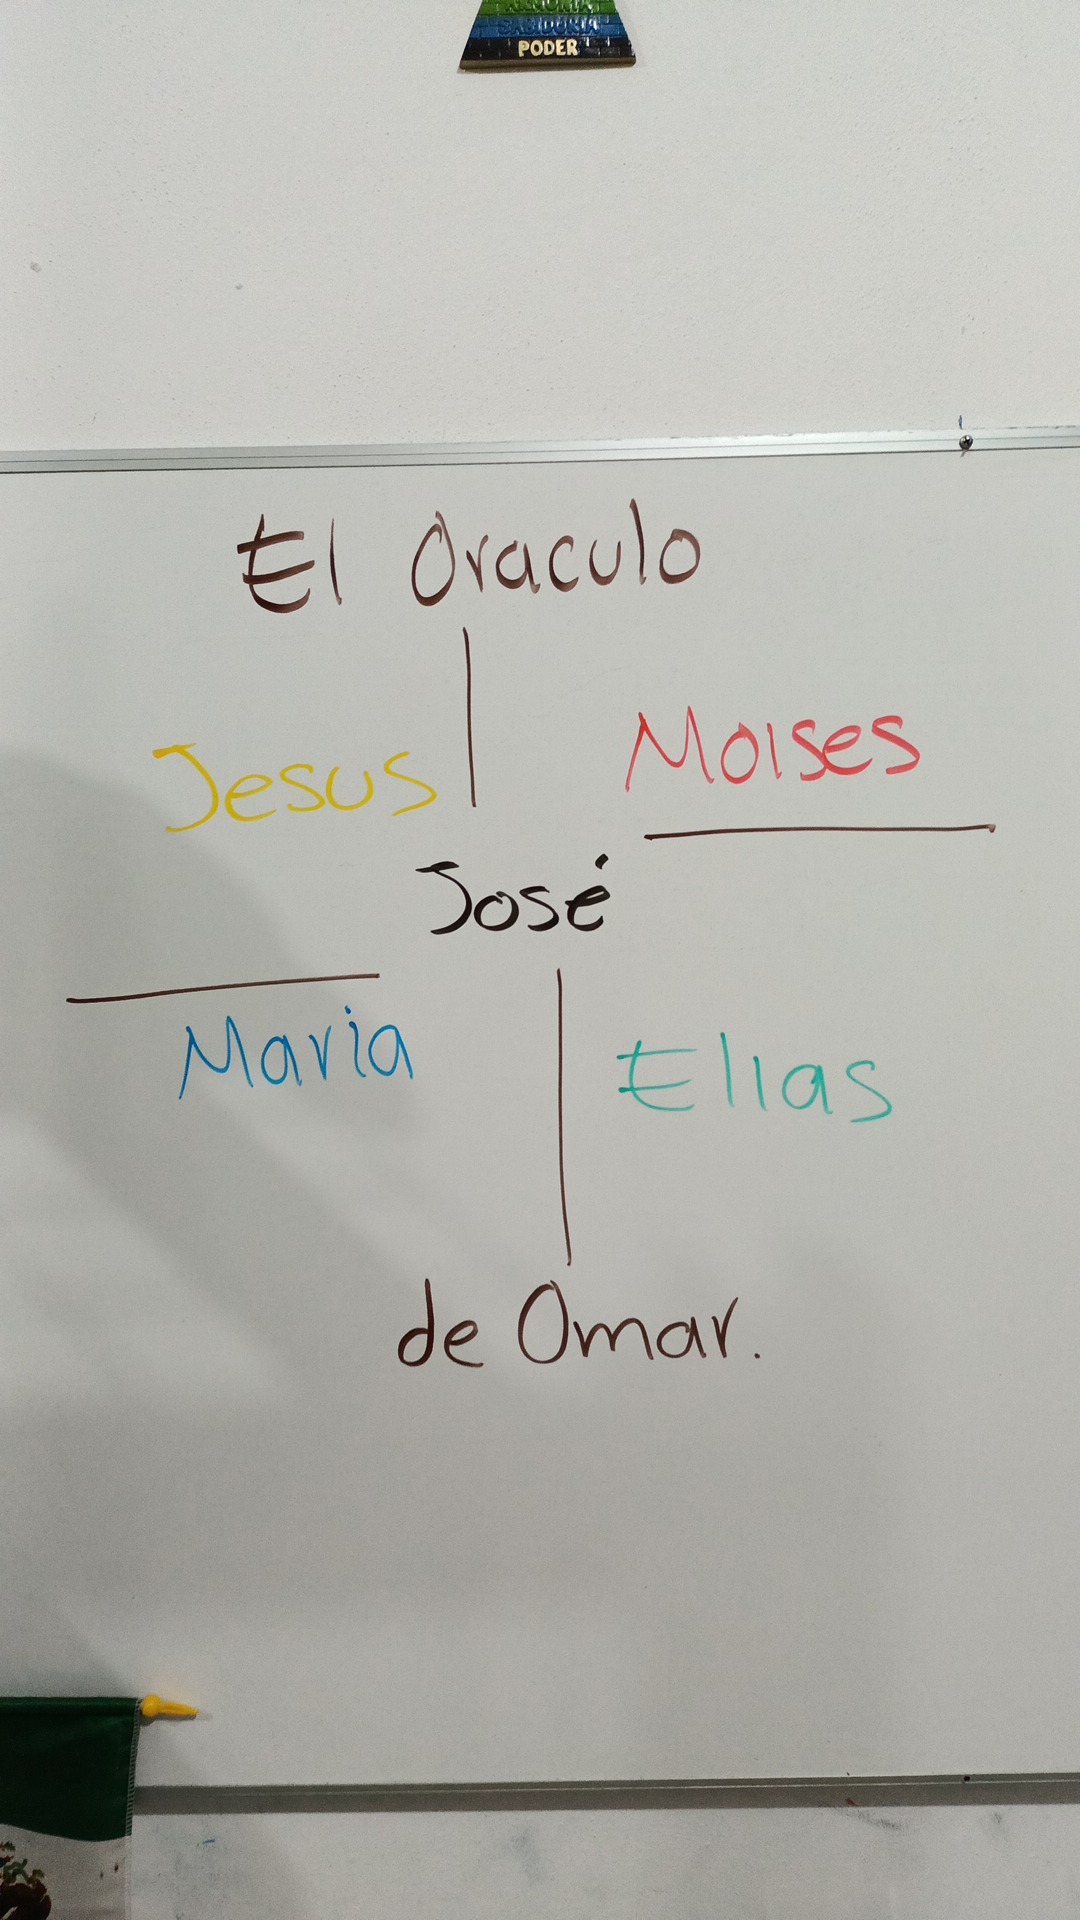 ARMONIA
SABIDURIA
PODER
El Oraculo
Jesus
Moises
José
Maria
Elias
de Omar.